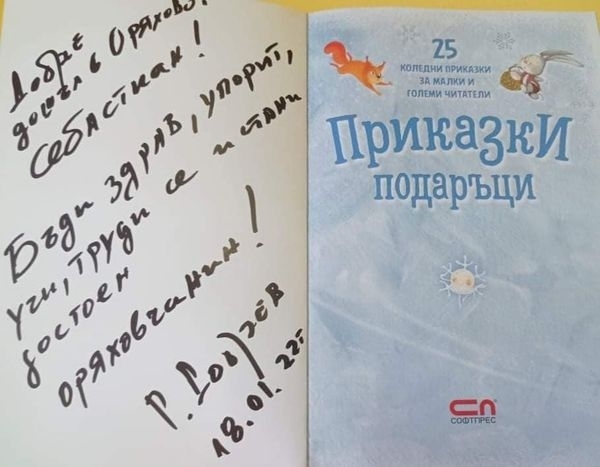 Добре
дошъл в Оряхово,
Себастиан!
Бъди здрав, упорит,
учи, труди се и стани
достоен
оряховчанин!
Р. Добрев
18.01.22г
25
КОЛЕДНИ ПРИКАЗКИ
ЗА МАЛКИ И
ГОЛЕМИ ЧИТАТЕЛИ
ПРИКАЗКИ
ПОДАРЪЦИ
СП
СОФТПРЕС